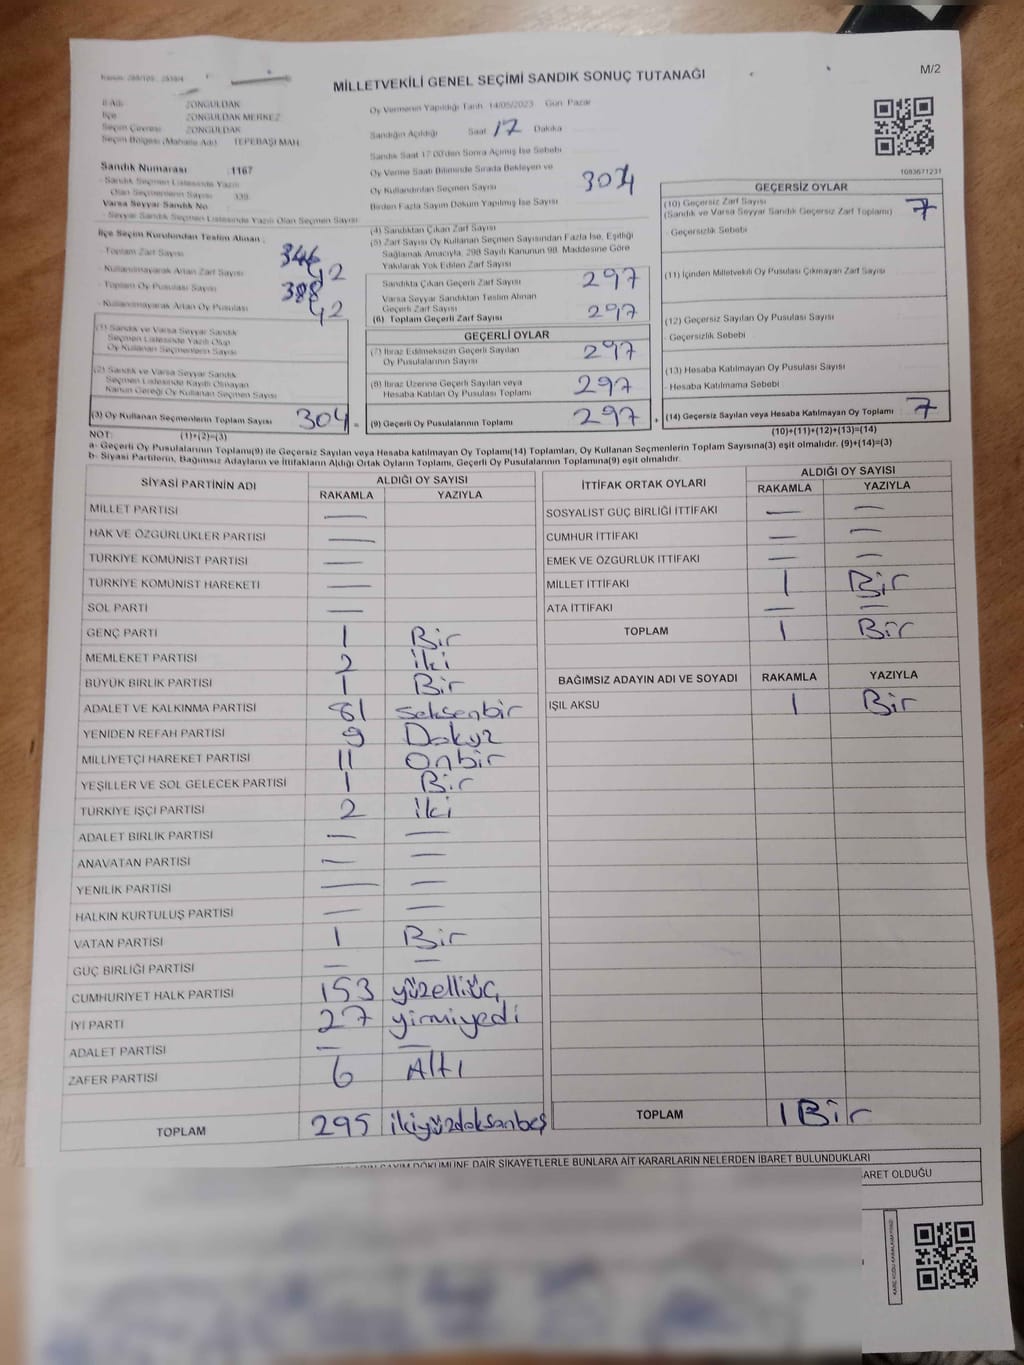 MİLLETVEKİLİ GENEL SEÇİMİ SANDIK SONUÇ TUTANAĞI
M/2
İl Adı : ZONGULDAK
İlçe : ZONGULDAK MERKEZ
Seçim Çevresi : ZONGULDAK
Seçim Bölgesi (Mahalle Adı) : TEPEBAŞI MAH.
Sandık Numarası : 1167
- Sandık Seçmen Listesinde Yazılı
Olan Seçmenlerin Sayısı : 339
Varsa Seyyar Sandık No
- Seyyar Sandık Seçmen Listesinde Yazılı Olan Seçmen Sayısı
Oy Vermenin Yapıldığı Tarih 14/05/2023 Gün Pazar
Sandığın Açıldığı Saat 17 Dakika
Sandık Saat 17.00'den Sonra Açılmış İse Sebebi
Oy Verme Saati Bitiminde Sırada Bekleyen ve
Oy Kullandırılan Seçmen Sayısı 304
Birden Fazla Sayım Döküm Yapılmış İse Sayısı
1083671231
İlçe Seçim Kurulundan Teslim Alınan :
- Toplam Zarf Sayısı 346
- Kullanılmayarak Artan Zarf Sayısı 42
- Toplam Oy Pusulası Sayısı 388
- Kullanılmayarak Artan Oy Pusulası 42
(1) Sandık ve Varsa Seyyar Sandık
Seçmen Listesinde Yazılı Olup
Oy Kullanan Seçmenlerin Sayısı
(2) Sandık ve Varsa Seyyar Sandık
Seçmen Listesinde Kayıtlı Olmayan
Kanun Gereği Oy Kullanan Seçmen Sayısı
(3) Oy Kullanan Seçmenlerin Toplam Sayısı 304 =
(4) Sandıktan Çıkan Zarf Sayısı
(5) Zarf Sayısı Oy Kullanan Seçmen Sayısından Fazla İse, Eşitliği
Sağlamak Amacıyla, 298 Sayılı Kanunun 98. Maddesine Göre
Yakılarak Yok Edilen Zarf Sayısı
Sandıkta Çıkan Geçerli Zarf Sayısı 297
Varsa Seyyar Sandıktan Teslim Alınan
Geçerli Zarf Sayısı
(6) Toplam Geçerli Zarf Sayısı 297
GEÇERLİ OYLAR
(7) İtiraz Edilmeksizin Geçerli Sayılan
Oy Pusulalarının Sayısı 297
(8) İtiraz Üzerine Geçerli Sayılan veya
Hesaba Katılan Oy Pusulası Toplamı 297
(9) Geçerli Oy Pusulalarının Toplamı 297 +
GEÇERSİZ OYLAR
(10) Geçersiz Zarf Sayısı
(Sandık ve Varsa Seyyar Sandık Geçersiz Zarf Toplamı) 7
- Geçersizlik Sebebi
(11) İçinden Milletvekili Oy Pusulası Çıkmayan Zarf Sayısı
(12) Geçersiz Sayılan Oy Pusulası Sayısı
- Geçersizlik Sebebi
(13) Hesaba Katılmayan Oy Pusulası Sayısı
- Hesaba Katılmama Sebebi
(14) Geçersiz Sayılan veya Hesaba Katılmayan Oy Toplamı 7
NOT: (1)+(2)=(3) (10)+(11)+(12)+(13)=(14)
a- Geçerli Oy Pusulalarının Toplamı(9) ile Geçersiz Sayılan veya Hesaba katılmayan Oy Toplamı(14) Toplamları, Oy Kullanan Seçmenlerin Toplam Sayısına(3) eşit olmalıdır. (9)+(14)=(3)
b- Siyasi Partilerin, Bağımsız Adayların ve İttifakların Aldığı Ortak Oyların Toplamı, Geçerli Oy Pusulalarının Toplamına(9) eşit olmalıdır.
SİYASİ PARTİNİN ADI ALDIĞI OY SAYISI
RAKAMLA YAZIYLA
MİLLET PARTİSI —
HAK VE ÖZGÜRLÜKLER PARTİSİ —
TÜRKİYE KOMÜNİST PARTİSİ —
TÜRKİYE KOMÜNİST HAREKETİ —
SOL PARTİ —
GENÇ PARTİ 1 Bir
MEMLEKET PARTİSİ 2 iki
BÜYÜK BİRLİK PARTİSİ 1 Bir
ADALET VE KALKINMA PARTİSİ 81 seksenbir
YENİDEN REFAH PARTİSİ 9 Dokuz
MİLLİYETÇİ HAREKET PARTİSİ 11 onbir
YEŞİLLER VE SOL GELECEK PARTİSİ 1 Bir
TÜRKİYE İŞÇİ PARTİSİ 2 iki
ADALET BİRLİK PARTİSİ — —
ANAVATAN PARTİSİ — —
YENİLİK PARTİSİ — —
HALKIN KURTULUŞ PARTİSİ — —
VATAN PARTİSİ 1 Bir
GÜÇ BİRLİĞİ PARTİSİ — —
CUMHURİYET HALK PARTİSİ 153 yüzelliüç
İYİ PARTİ 27 yirmiyedi
ADALET PARTİSİ — —
ZAFER PARTİSİ 6 Altı
TOPLAM 295 ikiyüzdoksanbeş
İTTİFAK ORTAK OYLARI ALDIĞI OY SAYISI
RAKAMLA YAZIYLA
SOSYALİST GÜÇ BİRLİĞİ İTTİFAKI — —
CUMHUR İTTİFAKI — —
EMEK VE ÖZGÜRLÜK İTTİFAKI — —
MİLLET İTTİFAKI 1 Bir
ATA İTTİFAKI — —
TOPLAM 1 Bir
BAĞIMSIZ ADAYIN ADI VE SOYADI RAKAMLA YAZIYLA
IŞIL AKSU 1 Bir
TOPLAM 1 Bir
SAYIM DÖKÜMÜNE DAİR ŞİKAYETLERLE BUNLARA AİT KARARLARIN NELERDEN İBARET BULUNDUKLARI
OLDUĞU